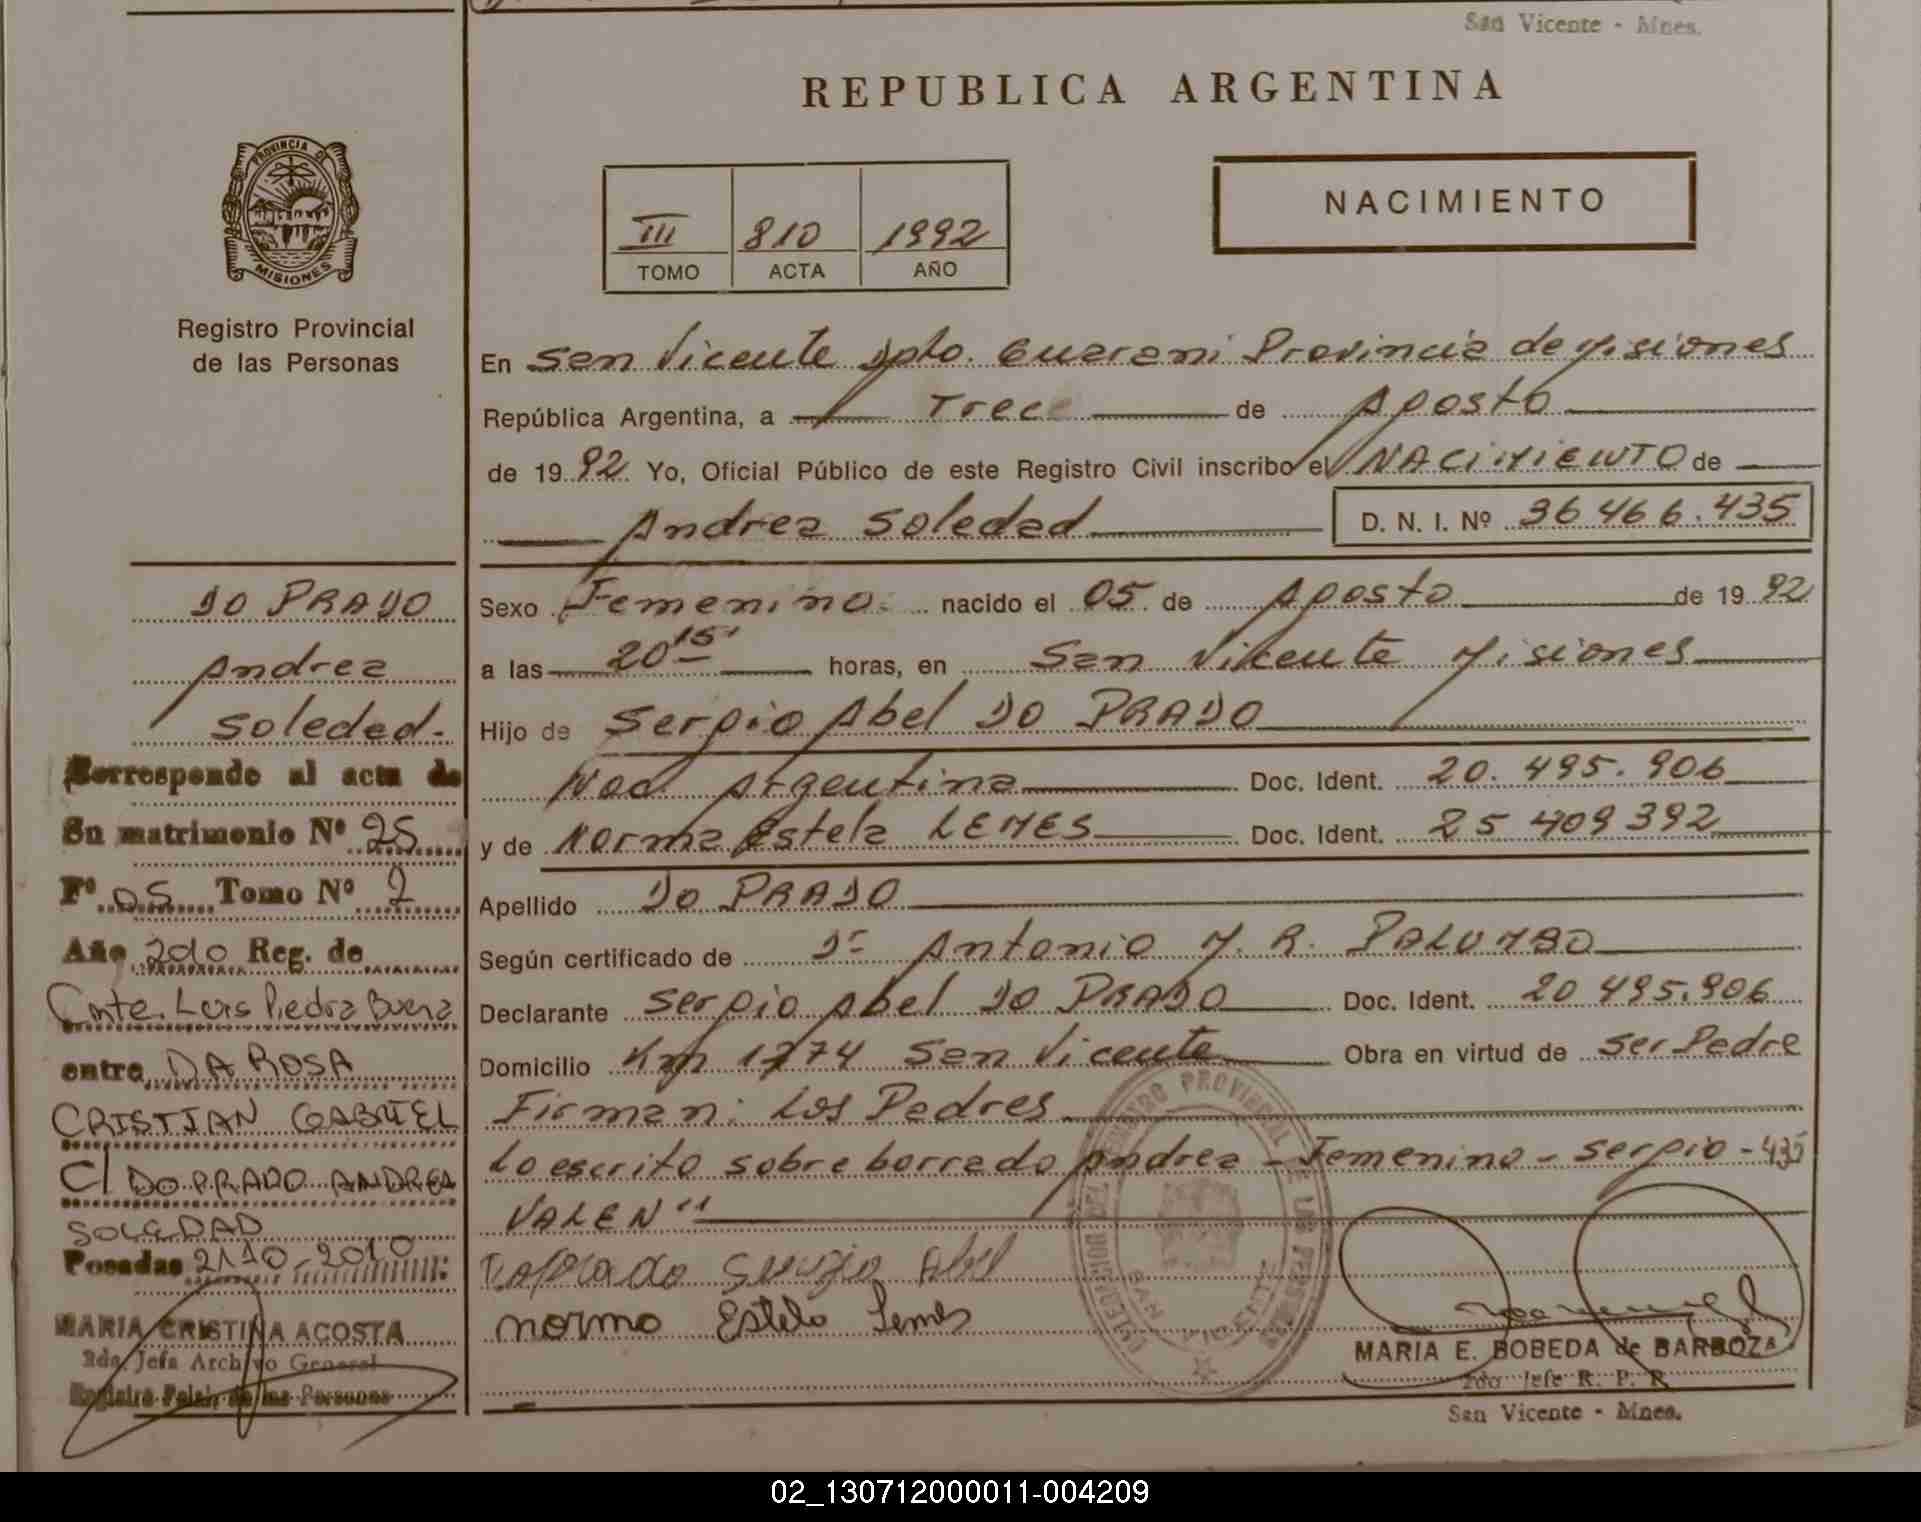 San Vicente - Mnes.
REPUBLICA ARGENTINA
PROVINCIA DE
MISIONES
Registro Provincial
de las Personas
III 810 1992
TOMO ACTA AÑO
NACIMIENTO
En San Vicente Dpto. Guarani Provincia de Misiones
República Argentina, a Trece de Agosto
de 1992 Yo, Oficial Público de este Registro Civil inscribo el NACIMIENTO de
Andrea Soledad D. N. I. Nº 36 466.435
Sexo Femenino. nacido el 05 de Agosto de 1992
a las 20 15' horas, en San Vicente Misiones
Hijo de Sergio Abel DO PRADO
Nac. Argentina Doc. Ident. 20.495.906
y de Norma Estela LEMES Doc. Ident. 25 409 392
Apellido DO PRADO
Según certificado de Dr Antonio M. R. PALUMBO
Declarante Sergio Abel DO PRADO Doc. Ident. 20 495.906
Domicilio Km 1274 San Vicente Obra en virtud de Ser Padre
Firman: Los Padres
Lo escrito sobre borrado Andrea - Femenino - Sergio - 435
VALEN"
Doprado Sergio Abel
norma Estela Lemes
MARIA E. BOBEDA de BARBOZA
2do Jefe R. P. P.
San Vicente - Mnes.
DO PRADO
Andrea
Soledad.-
Corresponde al acta de
Su matrimonio Nº 25
Fº 05 Tomo Nº 2
Año 2010 Reg. de
Cnte. Luis Piedra Buena
entre DA ROSA
CRISTIAN GABRIEL
C/ DO PRADO ANDREA
SOLEDAD
Posadas 21-10-2010
MARIA CRISTINA ACOSTA
2da Jefa Archivo General
Registro Pcial. de las Personas
02_130712000011-004209